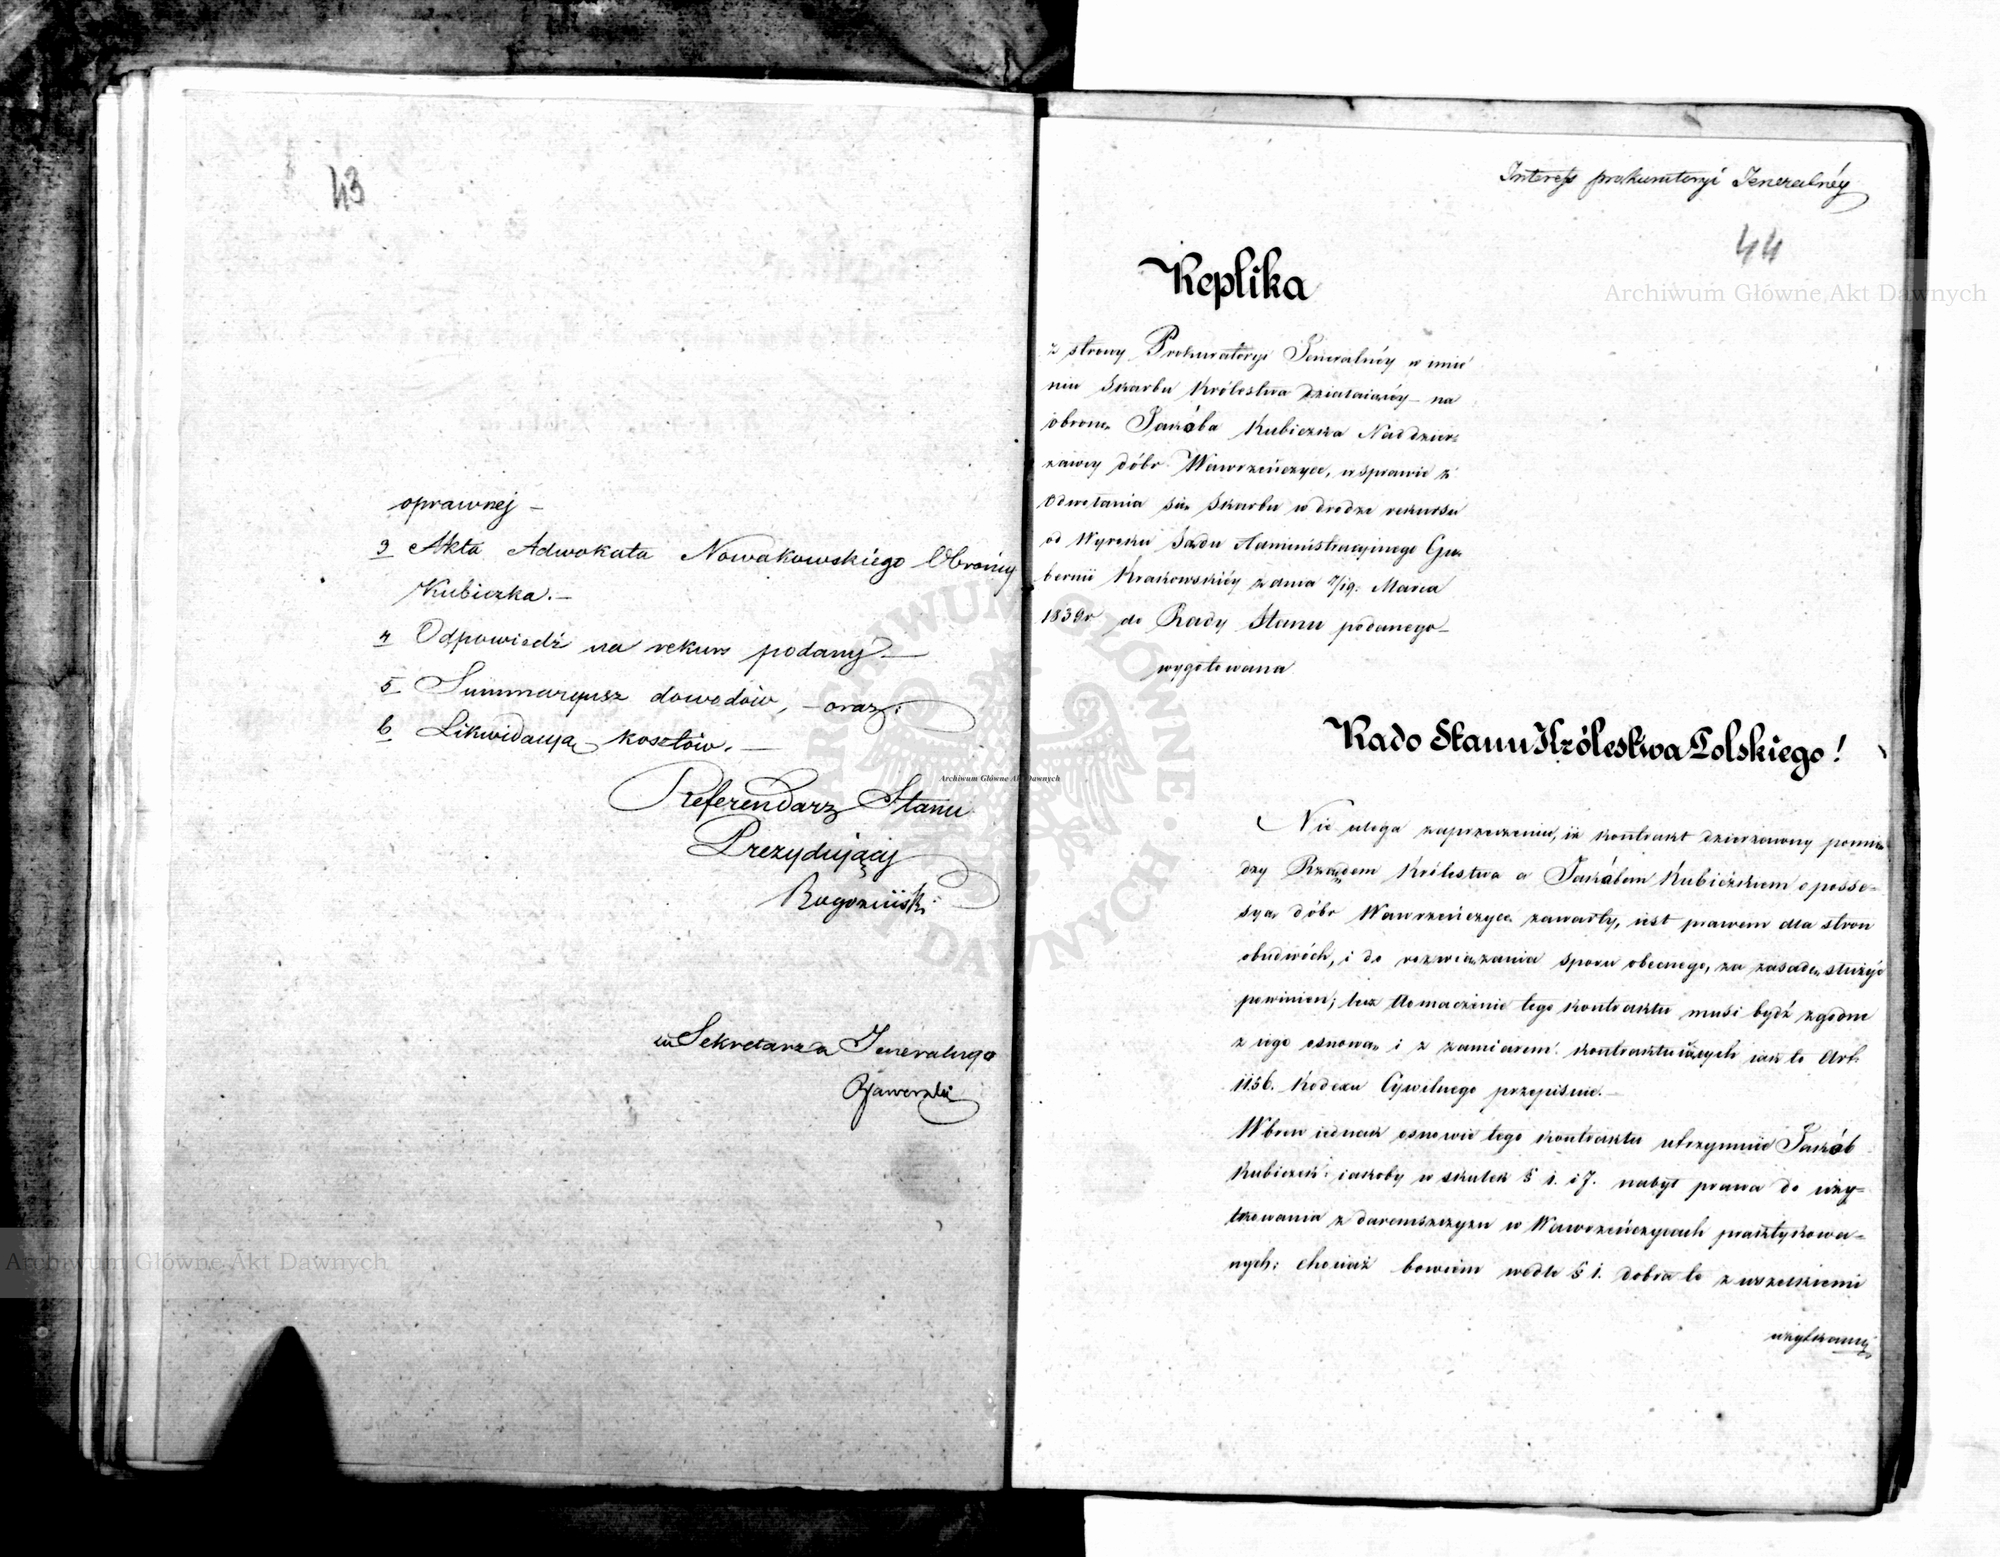 43
oprawnej –
3 Akta Adwokata Nowakowskiego Obrońcy
Kubiczka. –
4 Odpowiedź na rekurs podany. –
5 Summaryusz dowodów, – oraz:
6 Likwidacya kosztów. –
Referendarz Stanu
Prezydujący
Rogoziński
za Sekretarza Jeneralnego
Jaworski
Interess prokuratoryi Jeneralnéy
44
Replika
z strony Prokuratoryi Jeneralnéy w imie
niu Skarbu Królestwa działaiącéy – na
obronę Jakóba Kubiczka Naddzier=
żawcy dóbr Wawrzeńczyce, w sprawie z
odwołania się Skarbu w drodze rekursu
od Wyroku Sądu Administracyjnego Gu=
bernii Krakowskiéy z dnia 7/19. Marca
1839 r do Rady Stanu podanego –
wygotowana
Rado Stanu Królestwa Polskiego!
Nie ulega zaprzeczeniu, iż kontrakt dzierżawny pomię
dzy Rządem Królestwa a Jakóbem Kubiczkiem o posse=
syą dóbr Wawrzeńczyce zawarty, iest prawem dla stron
obudwóch, i do rozwiązania sporu obecnego, za zasadę służyć
powinien; lecz tłomaczenie tego kontraktu musi bydź zgodne
z iego osnową i z zamiarem kontraktuiących iak to Art.
1156. Kodexu Cywilnego przepisuie. –
Wbrew iednak osnowie tego kontraktu utrzymuie Jakób
Kubiczek iakoby w skutek § 1. i 7. nabył prawa do uży=
tkowania z daremszczyzn w Wawrzeńczycach praktykowa=
nych: chociaż bowiem wedle § 1. dobra te z wszelkiemi
użytkami
Archiwum Główne Akt Dawnych
Archiwum Główne Akt Dawnych
Archiwum Główne Akt Dawnych
ARCHIWUM GŁÓWNE AKT DAWNYCH